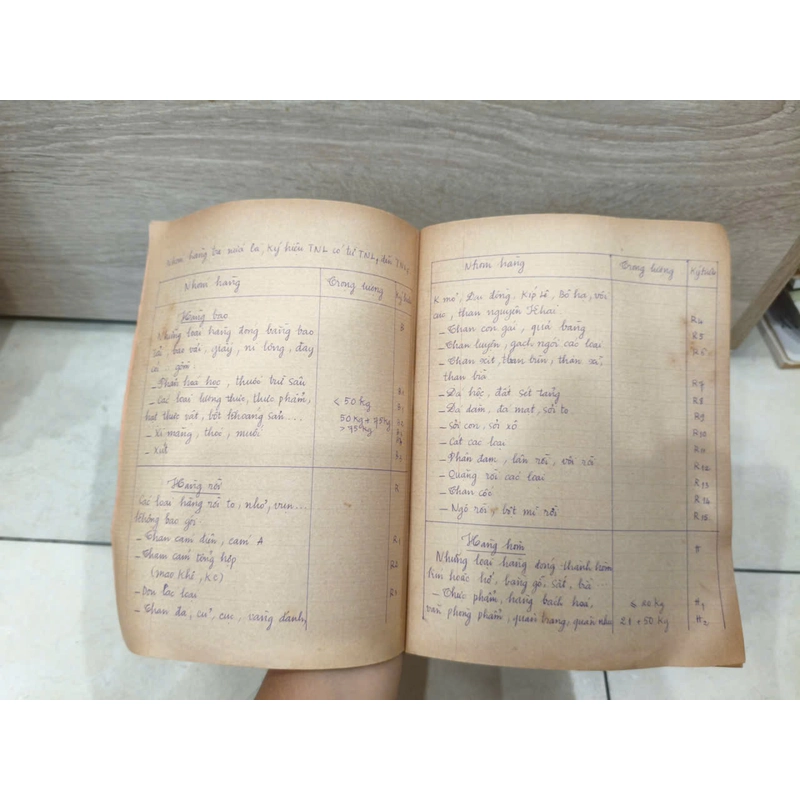 Nhóm hàng trừ mưa là, ký hiệu TNL có từ TNL, đến TNL
Nhóm hàng Trọng lượng Ký hiệu
Hàng bao
Những loại hàng đóng bằng bao B
bao vải, giấy, ni lông, đay
cói, gồm:
- Phân hoá học, thuốc trừ sâu B1
- Các loại lương thực, thực phẩm, ≤ 50 Kg B1
hạt thực vật, bột khoáng sản... 50 Kg ÷ 75 Kg
> 75 Kg
- Xi măng, thóc, muối.
- Xút
Hàng rời R
Các loại hàng rời to, nhỏ, vụn...
không bao gói
- Than cám điện, cám A R1
- Tham cám tổng hợp R2
(mạo khê, K.C)
- Don các loại R3
- Than đá, củ, cục, vàng danh,
Nhóm hàng Trọng lượng Ký hiệu
K mỏ, Đại đồng, Kíp lê, Bố hạ, với
cao, than nguyên khai R4
- Than con gai, quả bàng R5
- Than luyện, gạch ngói các loại R6
- Than xít, than trìn, than xỉ,
than bìa R7
- Đá hộc, đất sét tảng R8
- Đá dăm, đá mạt, sỏi to R9
- Sỏi con, sỏi xô R10
- Cát các loại R11
- Phân đạm, lân rời, vôi rời R12
- Quặng rời các loại R13
- Than cốc R14
- Ngô rời, bột mì rời R15
Hàng hòm
Những loại hàng đóng thành hòm
kín hoặc hở, bằng gỗ, sắt, bìa
- Thực phẩm, hàng bách hoá, H1
văn phòng phẩm, quân trang, quần nâu 21 ÷ 50 Kg H2